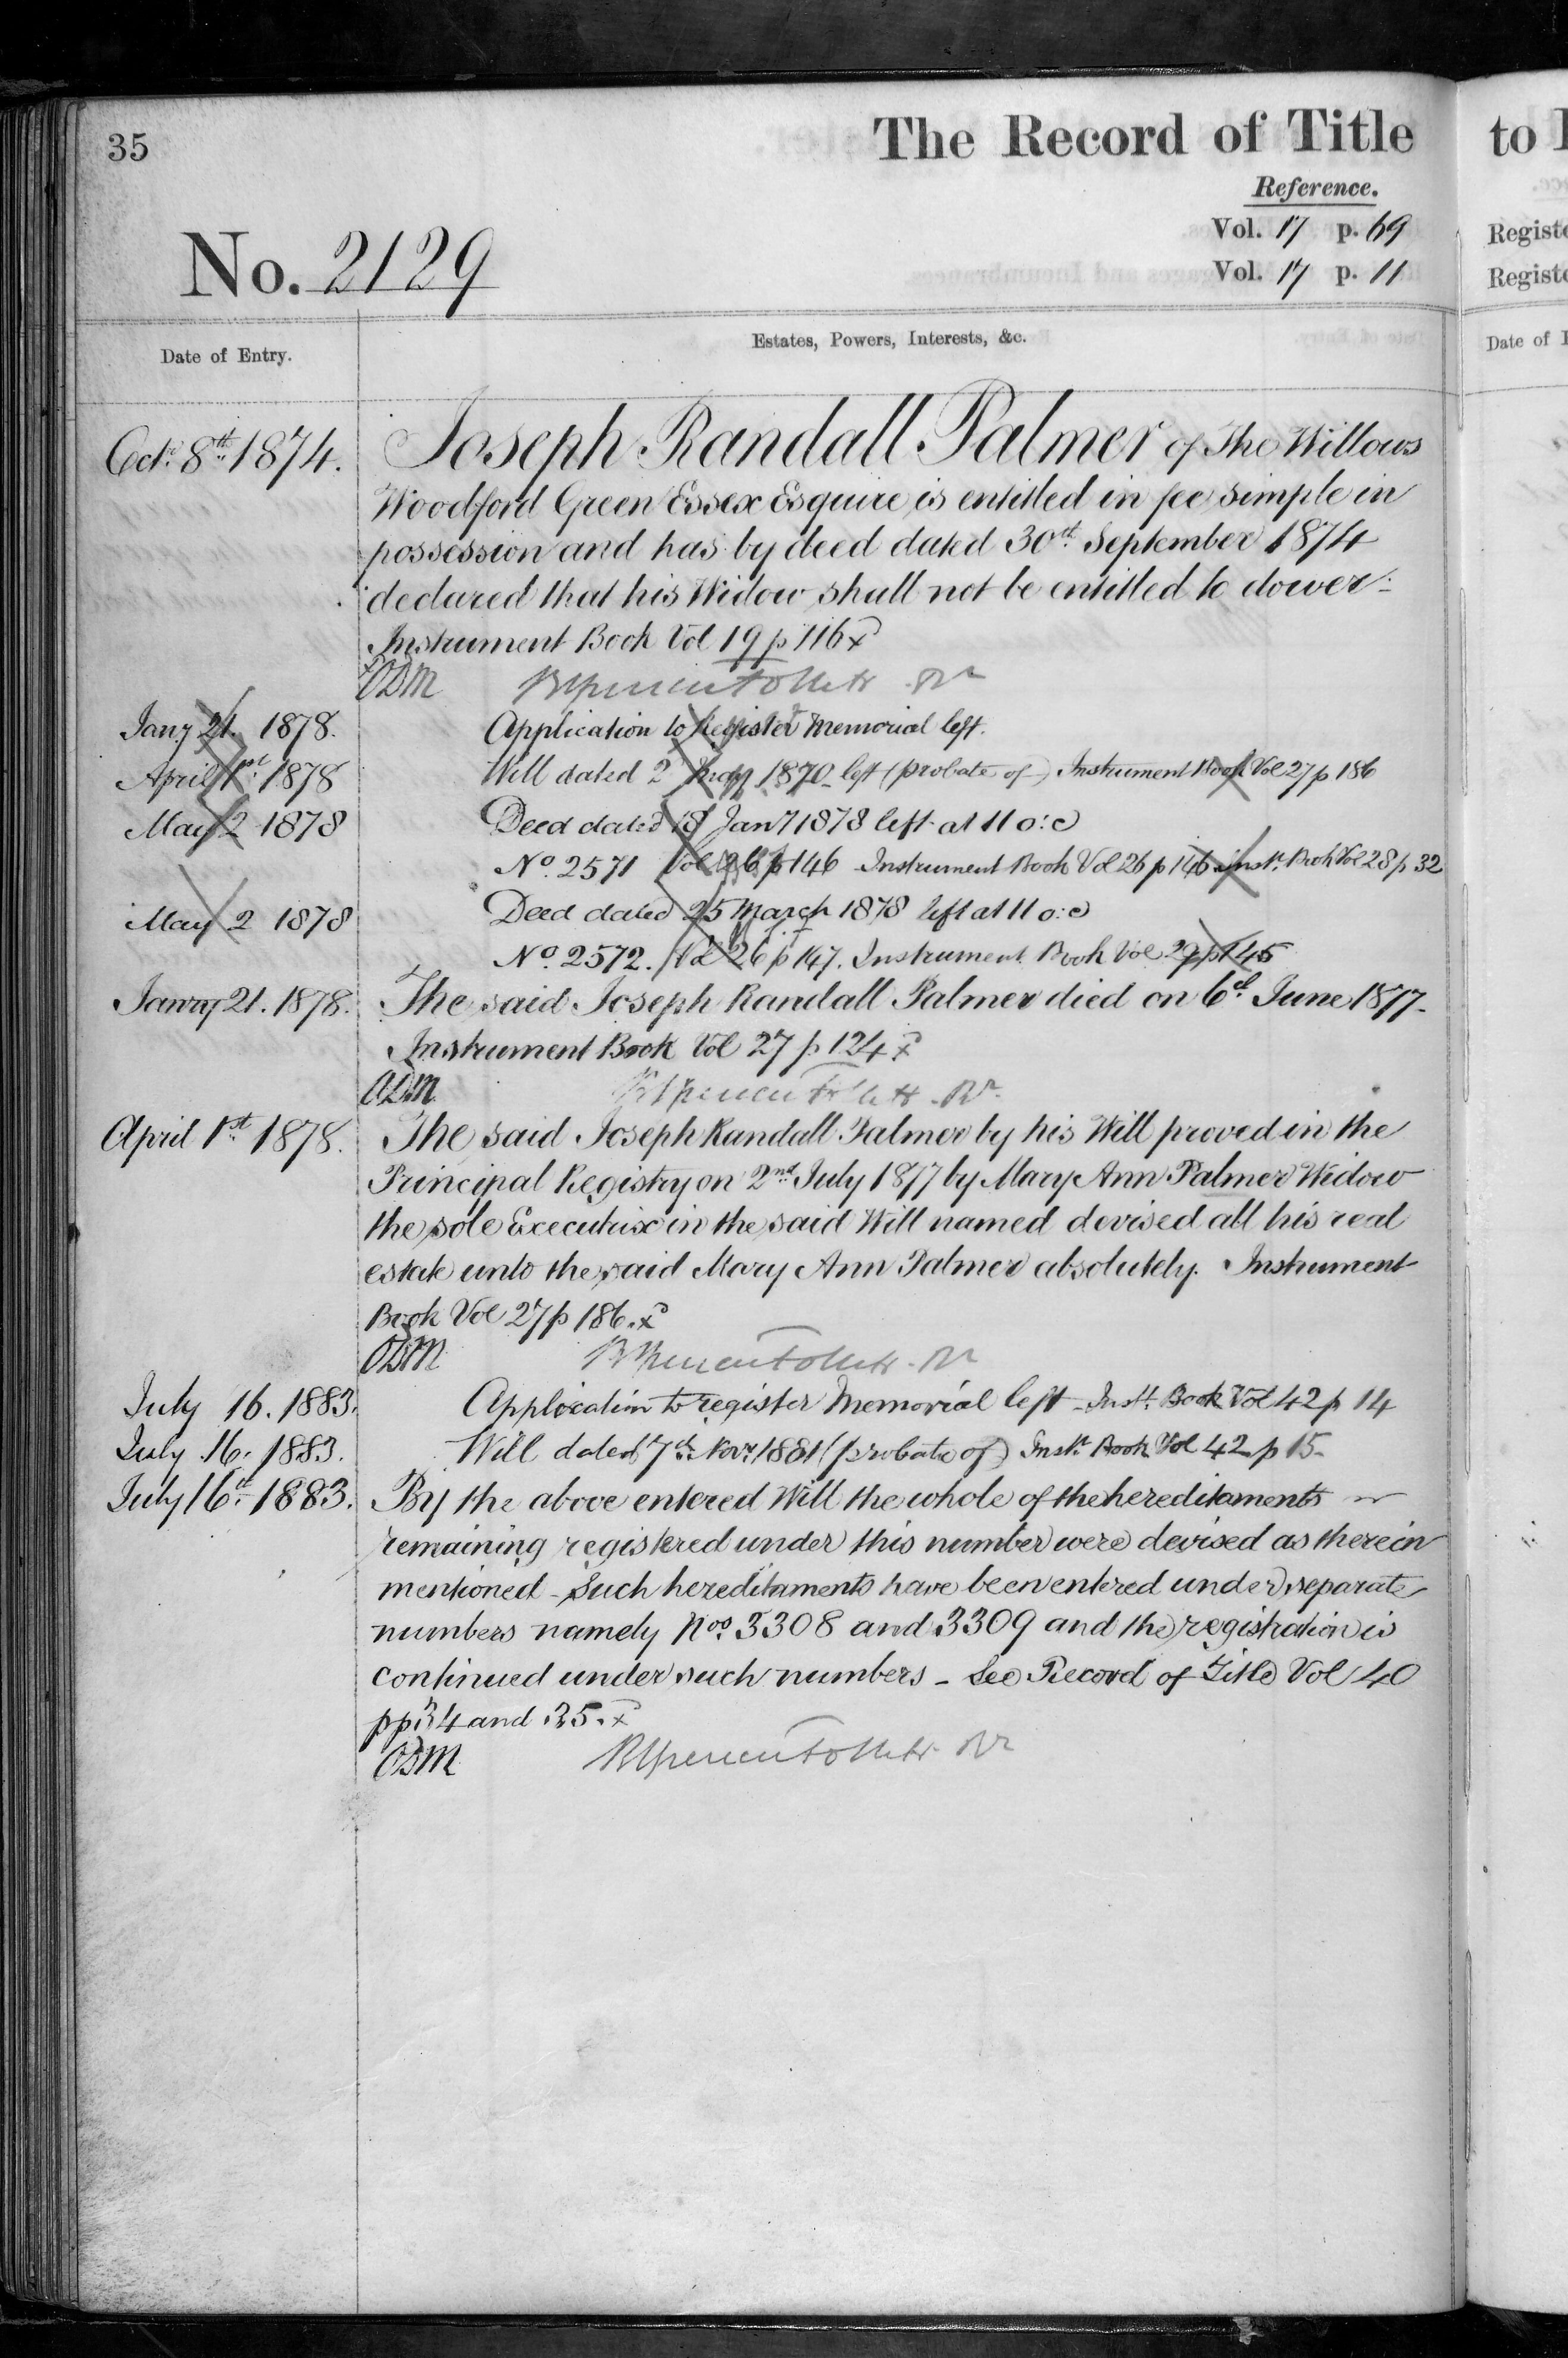 35
The Record of Title
Reference.
Vol. 17 p. 69
Vol. 17 p. 11
No. 2129
Date of Entry.
Estates, Powers, Interests, &c.
Octr. 8th 1874.
Joseph Randall Palmer of The Willows
Woodford Green Essex Esquire is entitled in fee simple in
possession and has by deed dated 30th September 1874
declared that his Widow shall not be entitled to dower.
Instrument Book Vol 19 p 116 x
Jany 21. 1878. Application to Register Memorial left.
April 1st. 1878 Will dated 2 1870 left (probate of) Instrument Book Vol 27 p 186
May 2 1878 Deed dated 18 Jany 1878 left at 11 o:c
No. 2571 Vol 26 p 146 Instrument Book Vol 26 p 146 Inst. Book Vol 28 p 32
May 2 1878 Deed dated 25 March 1878 left at 11 o:c
No. 2572. Vol 26 p 147. Instrument Book Vol p 145
Janry 21. 1878. The said Joseph Randall Palmer died on 6th June 1877.
Instrument Book Vol 27 p 124 x
April 1st. 1878. The said Joseph Randall Palmer by his Will proved in the
Principal Registry on 2nd July 1877 by Mary Ann Palmer Widow
the sole Executrix in the said Will named devised all his real
estate unto the said Mary Ann Palmer absolutely. Instrument
Book Vol 27 p 186. x
July 16. 1883. Application to register Memorial left - Inst. Book Vol 42 p 14
July 16. 1883. Will dated 7th Novr. 1881 (probate of) Inst. Book Vol 42 p 15
July 16th. 1883. By the above entered Will the whole of the hereditaments
remaining registered under this number were devised as therein
mentioned - Such hereditaments have been entered under separate
numbers namely Nos. 3308 and 3309 and the registration is
continued under such numbers - See Record of Title Vol 40
pp 34 and 35. x
to
Registe
Registe
Date of